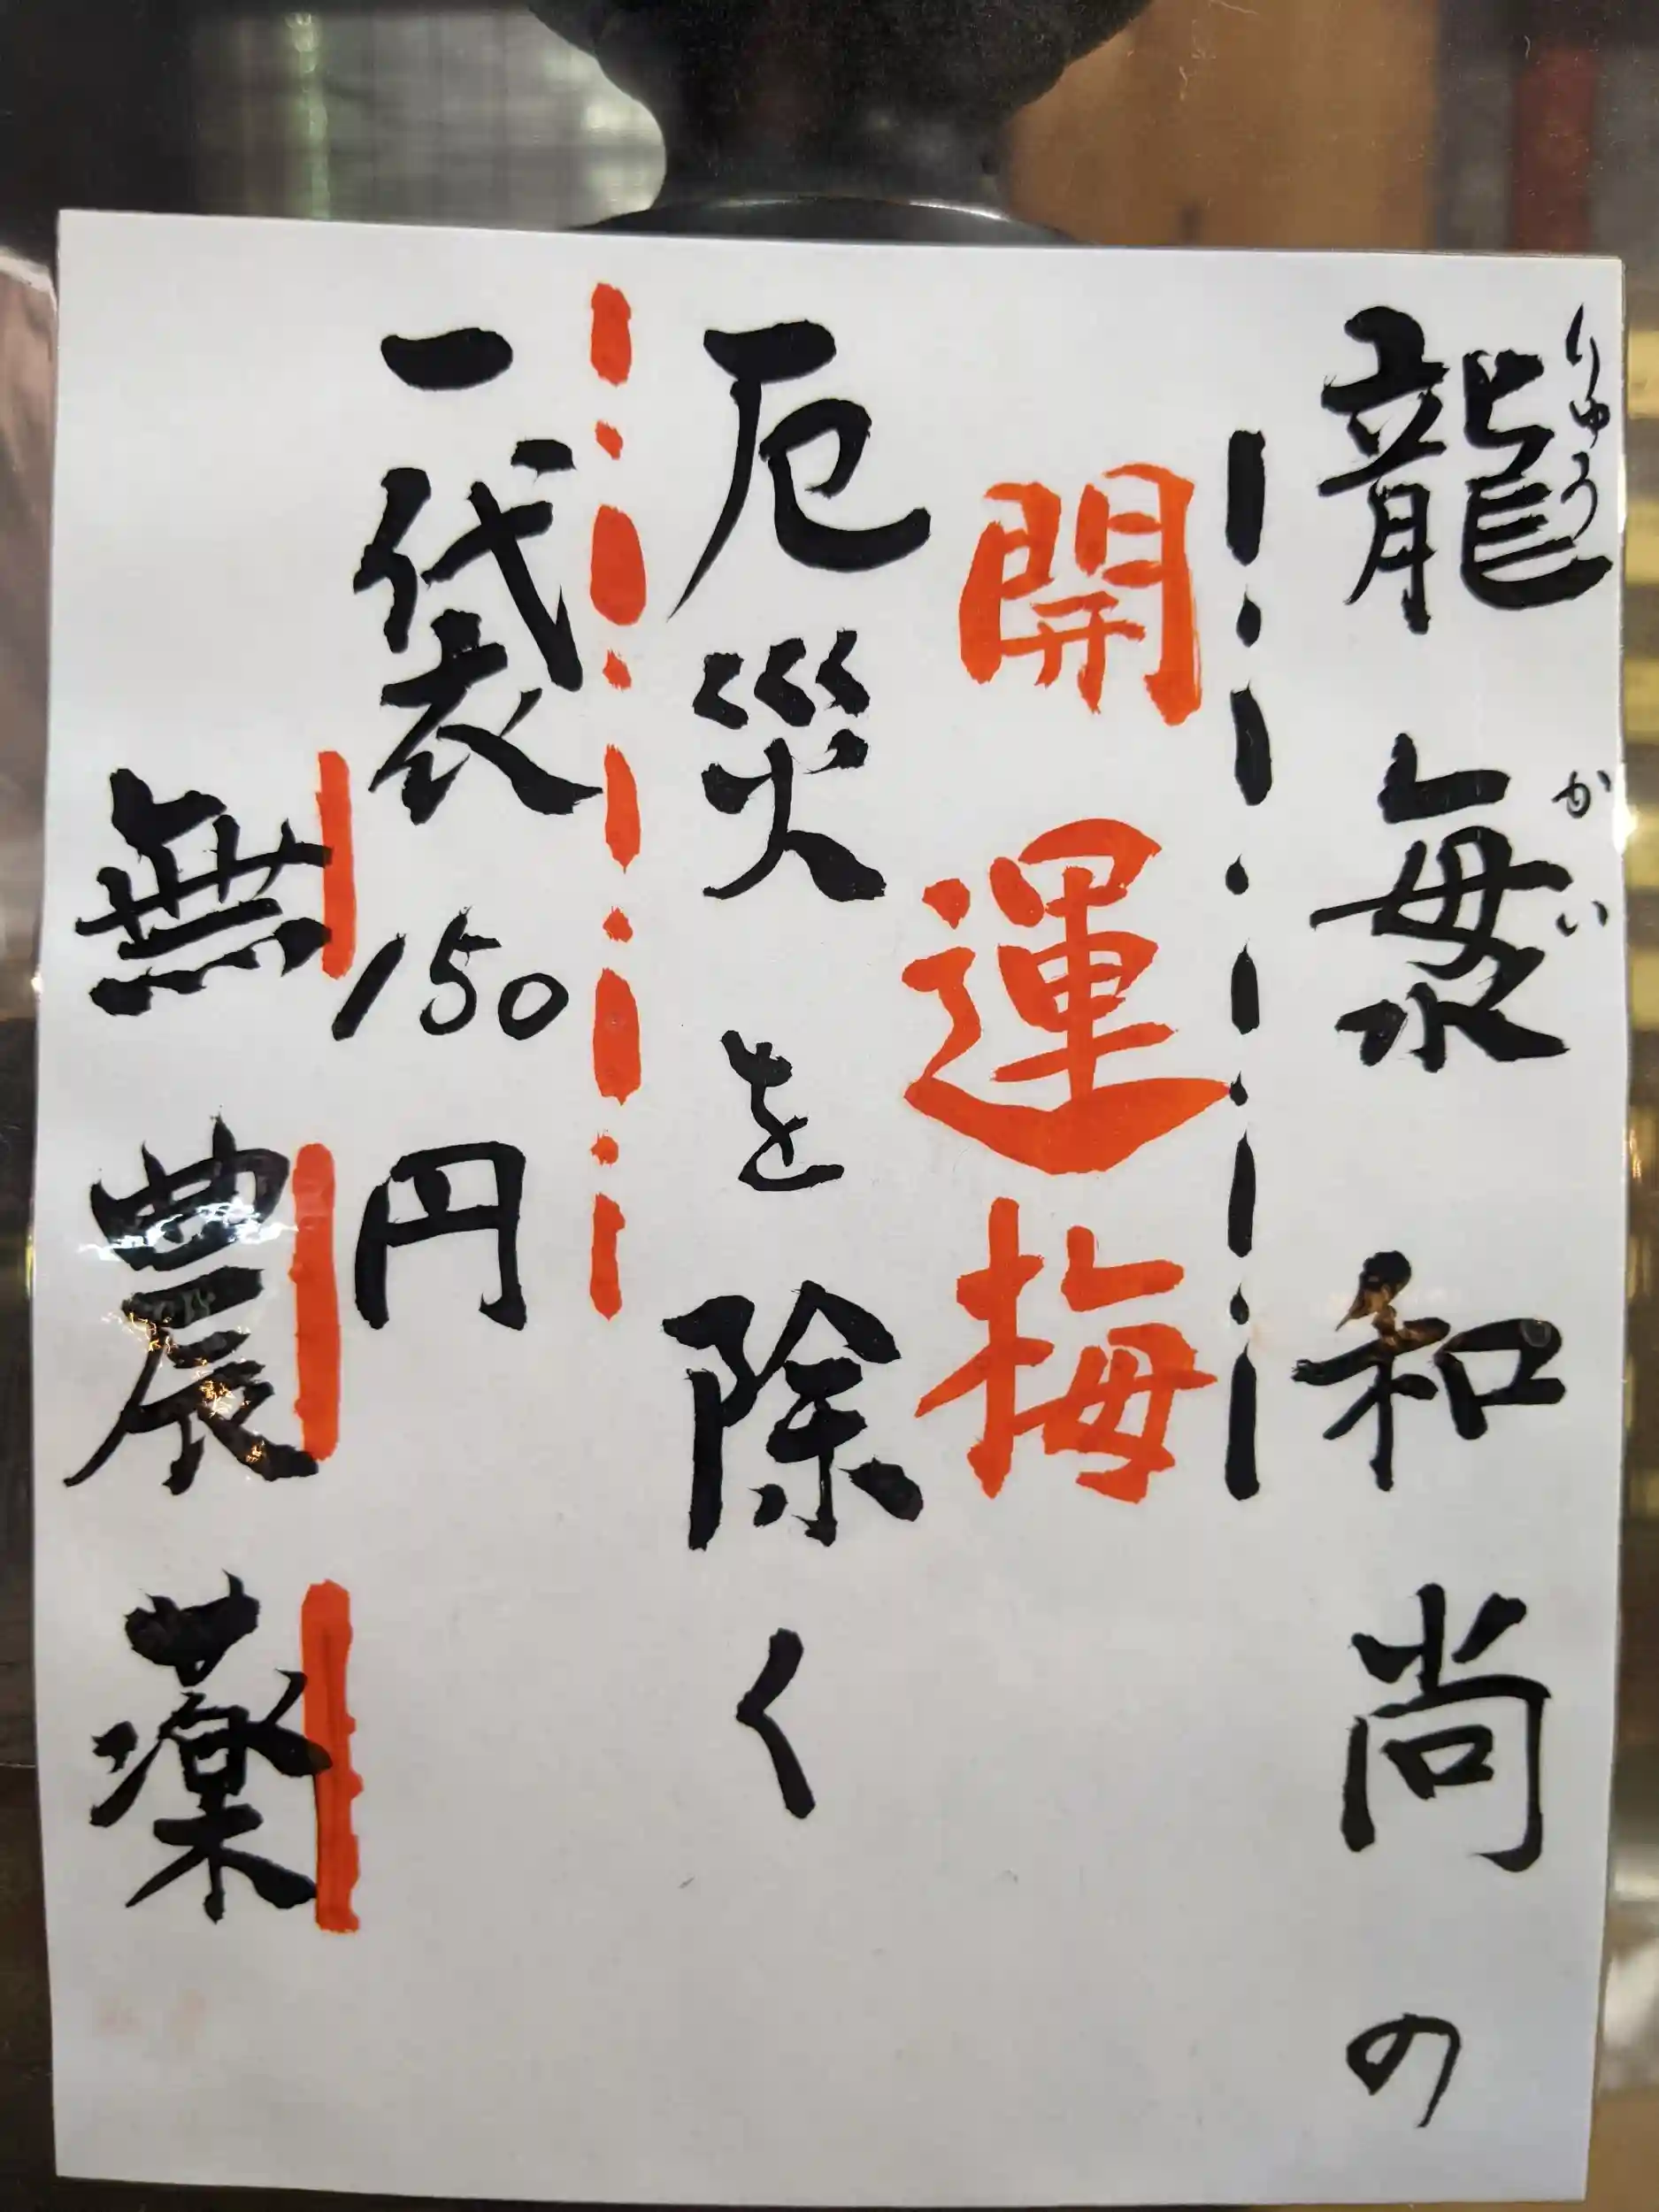 龍毎水和尚の
りゅうかい
開運梅
厄災を除く
一袋150円
無農薬